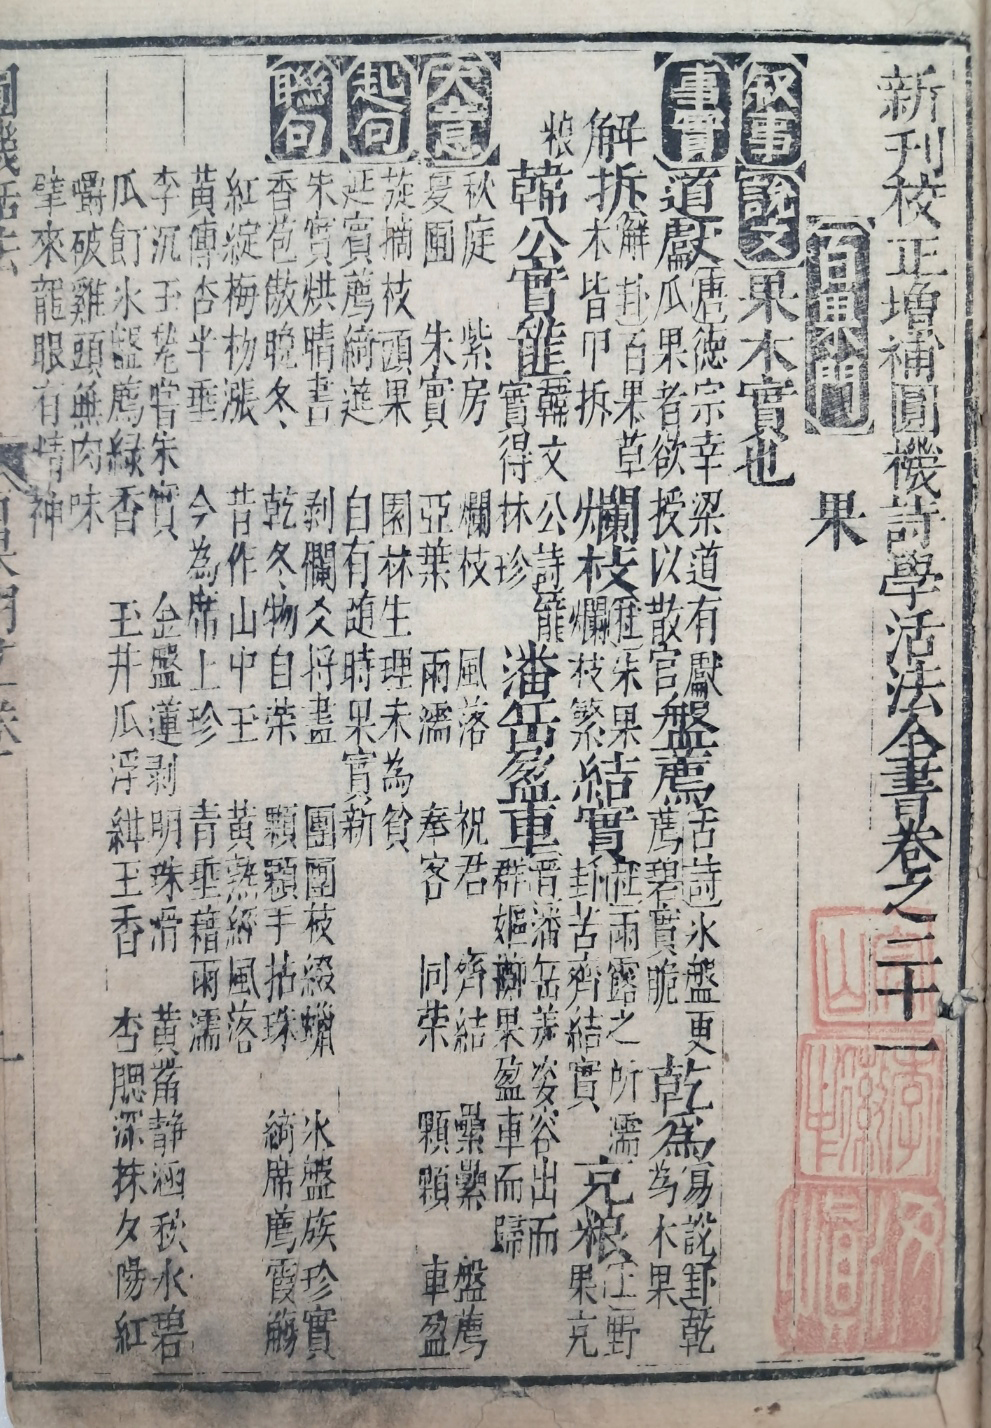 新刊校正增補圓機詩學活法全書卷之二十一
百果門
果
叙事
說文
果木實也
事實
道獻
唐德宗幸梁道有獻
瓜果者欲授以散官
盤薦
活詩冰盤更
薦碧實脆
乾為
易說卦乾
為木果
解拆
解卦百果草
木皆甲拆
爛枝
爛枝繁
結實
註雨露之所濡
封苦齊結實
充粮
果充
粮
韓公實籠
韓文公詩籠
實得林珍
潘岳盈車
晋潘岳美姿容出而
群嫗擲果盈車而歸
大意
秋庭 紫房 爛枝 風落 祝君 齊結 纍纍 盤薦
夏園 朱實 亞葉 雨濡 奉客 同荣 顆顆 車盈
起句
旋摘枝頭果 園林生理未為貧
延賓薦綺筵 自有随時果實新
聯句
朱實烘晴晝 剥爛爻将盡 團團枝綴蠟 冰盤族珍實
香苞傲晚冬 乾冬物自荣 顆顆手拈珠 綺席薦霞觴
紅綻梅杨漲 昔作山中玉 黃熟經風落
黃傳杏半垂 今為席上珍 青垂藉雨濡
李沉玉甃嘗朱實 金盤蓮剥明珠滑 黃䓑静涵秋水碧
瓜飣冰盤薦綠香 玉井瓜浮緋玉香 杏腮深抹夕陽紅
嚼破雞頭無肉味
擘來龍眼有精神